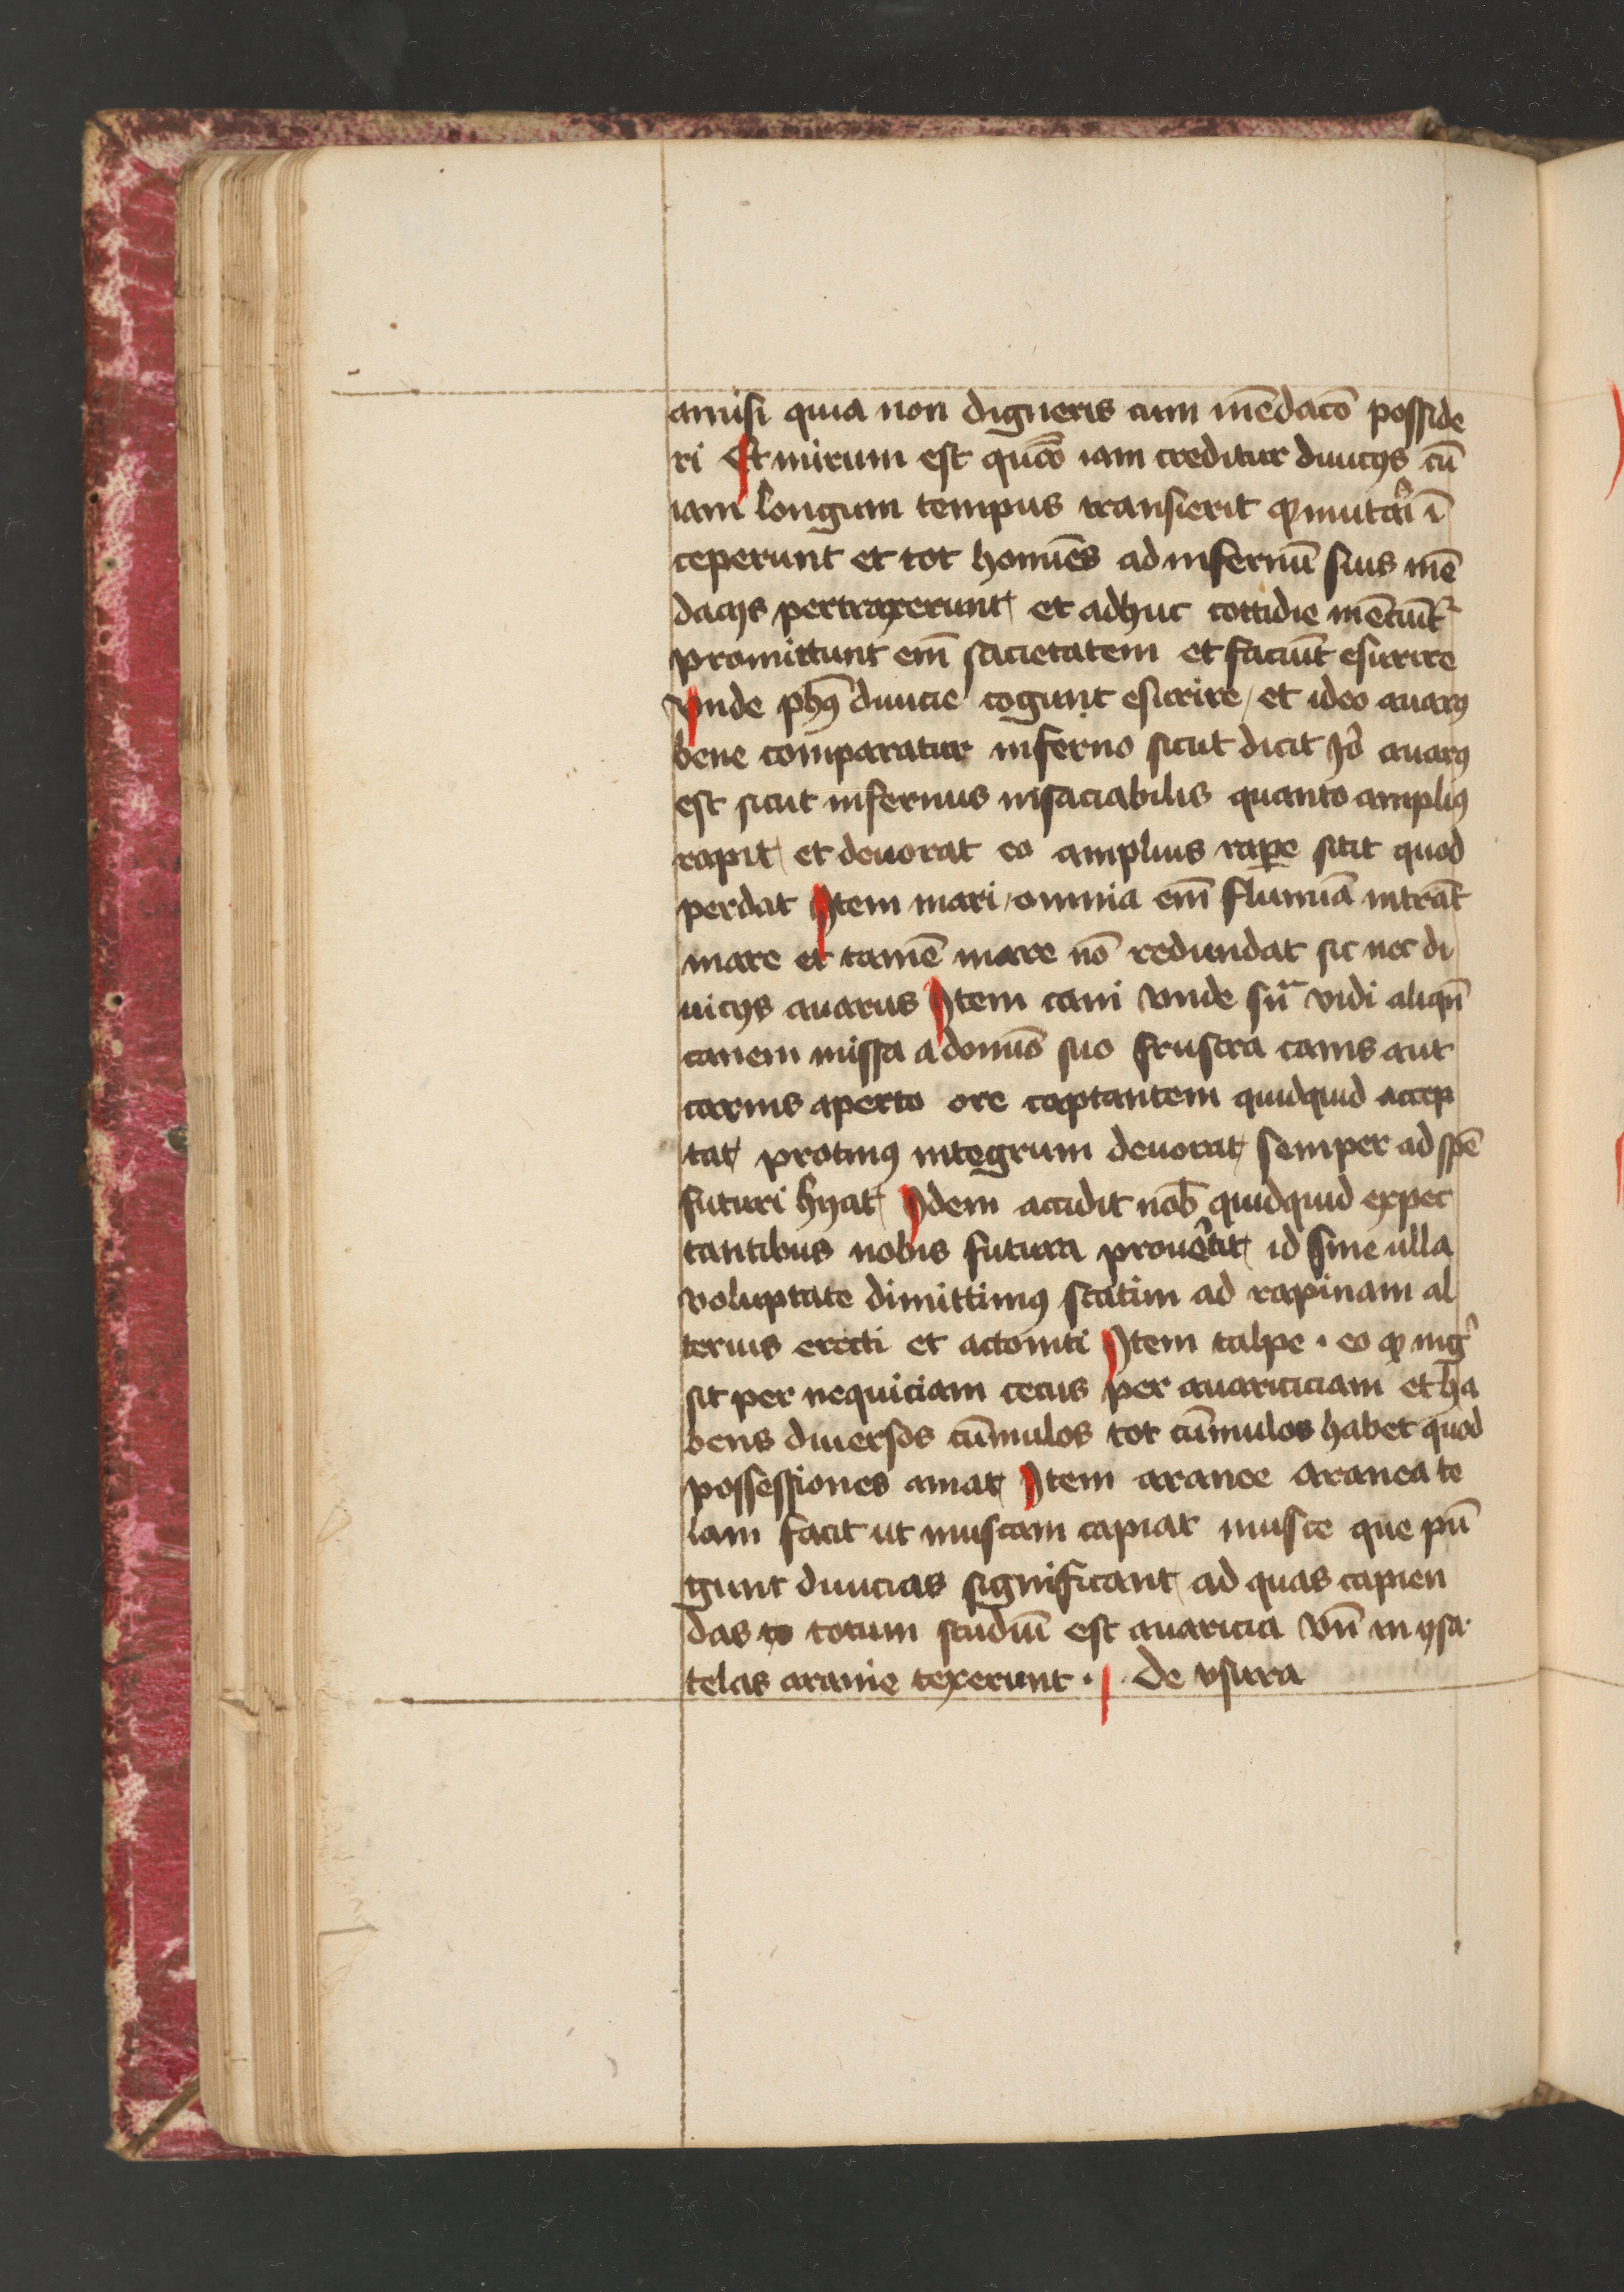 amisi quia non digneris cum mēdacō posside
ri Et mirum est quō iam creditur diuicijs cū
iam longum tempus transierit q mutari ī
ceperunt et tot homīes ad infernū suis mē
dacijs pertraxerunt et adhuc cottidie mēciūt
promittunt em̄ sacietatem et faciūt esurire
vnde phs diuicie cogunt esurire / et ideo auarꝯ
bene comparatur inferno sicut dicit auarꝯ
est sicut infernus insaciabilis quanto ampliꝯ
rapit et deuorat eo amplius rape sitit quod
perdat Item mari / omnia em̄ flumia intrāt
mare et tamē mare nō redundat sic nec di
uicijs auarus Item cani vnde vidi aliqn̄
canem missa a domīo suo frustra canis aut
carnis aperto ore captantem quidquid accep
tat protinꝯ integrum deuorat semper ad spē
futuri hijat Idem accidit nob̄ quidquid expec
tantibus nobis futura prouētit id sine ulla
voluptate dimittimꝯ statim ad rapinam al
terius erecti et actoniti Item talpe . eo q nig
sit per nequiciam cecus per auariciciam et ha
bens diuersos cūmulos tot cūmulos habet quod
possessiones amat Item aranee aranea te
lam facit ut muscam capiat musce que pū
gunt diuicias significant ad quas capien
das totum studiū est auaricia vn̄ in ysa.
telas aranie texerunt . De vsura